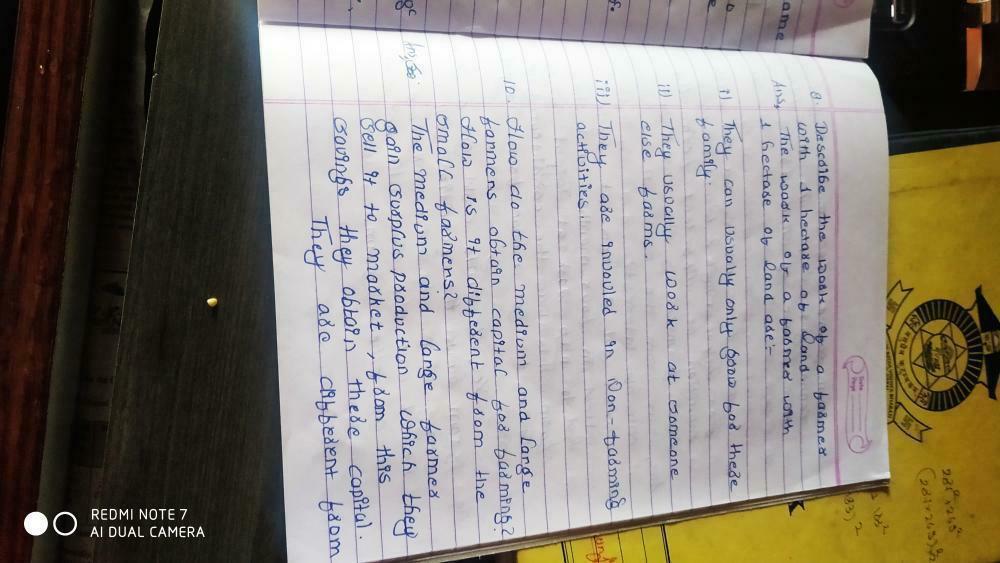 Date
Page
8. Describe the work of a farmer
with 1 hectare of land.
Ans, The work of a farmer with
1 hectare of land are:-
i) They can usually only grow for there
family.
ii) They usually work at someone
else farms.
iii) They are invovled in Non-farming
activities.
10. How do the medium and large
farmers obtain capital for farming?
How is it different from the
small farmers?
The medium and large farmer
gain surplus production which they
sell it to market, from this
savings they obtain there capital.
They are different from
ame
REDMI NOTE 7
AI DUAL CAMERA